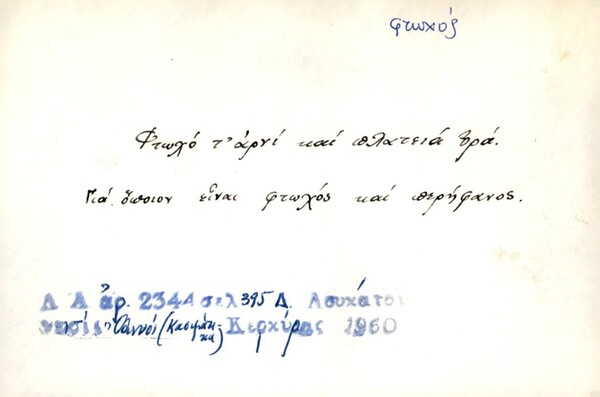 φτωχός
Φτωχό τ' ἀρνί καί πλατειά ὀρά.
Γιά ὅποιον εἶναι φτωχός καί περήφανος.
Λ Α ἀρ. 2344 σελ 395 Δ. Λουκάτου
νησί Ὀθωνοί Κερκύρας 1960